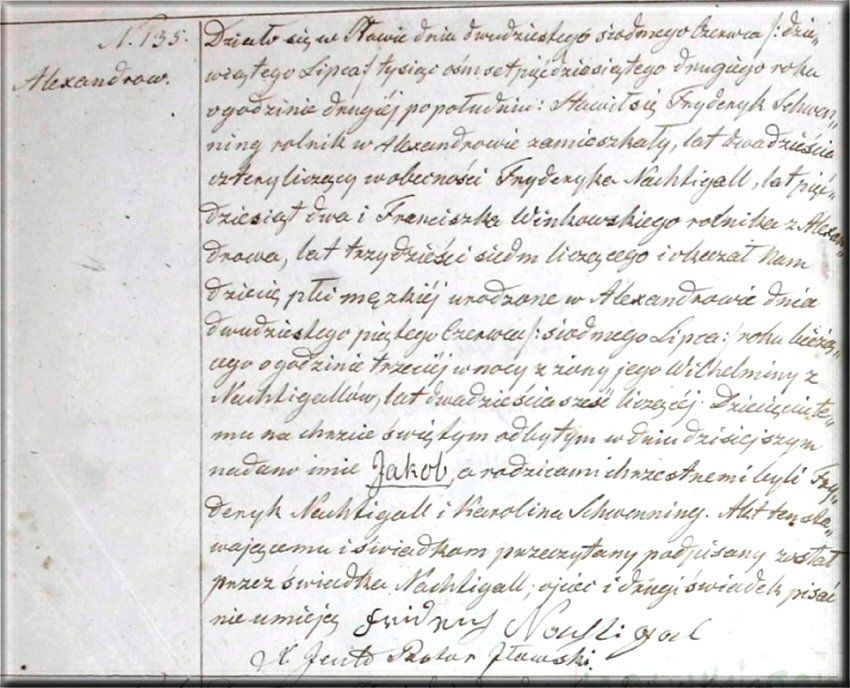 N. 135.
Alexandrow.
Działo się w Iławie dnia dwudziestego siodmego Czerwca /: dzie„
wiątego Lipca :/ tysiąc ośmset pięćdziesiątego drugiego roku
o godzinie drugiéj popołudniu: Stawił się Fryderyk Schwen„
ning rolnik w Alexandrowie zamieszkały, lat dwadzieścia
cztery liczący w obecności Fryderyka Nachtigall, lat pięć„
dziesiąt dwa i Franciszka Winkowskiego rolnika z Alexan„
drowa, lat trzydzieści siedm liczącego i okazał Nam
dziecię płci męzkiéj urodzone w Alexandrowie dnia
dwudziestego piątego Czerwca /: siodmego Lipca :/ roku bieżą„
cego o godzinie trzeciéj w nocy z żony jego Wilhelminy z
Nachtigallów, lat dwadzieścia sześć liczącéj. Dziecięciu te„
mu na chrzcie świętym odbytym w dniu dzisiejszym
nadano imie Jakob, a rodzicami chrzestnemi byli Fry„
deryk Nachtigall i Karolina Schwenning. Akt ten sta„
wającemu i świadkom przeczytany podpisany został
przez świadka Nachtigall; ojciec i drugi świadek pisać
nie umieją Fridrich Nachtigal
X Pastor Iławski.